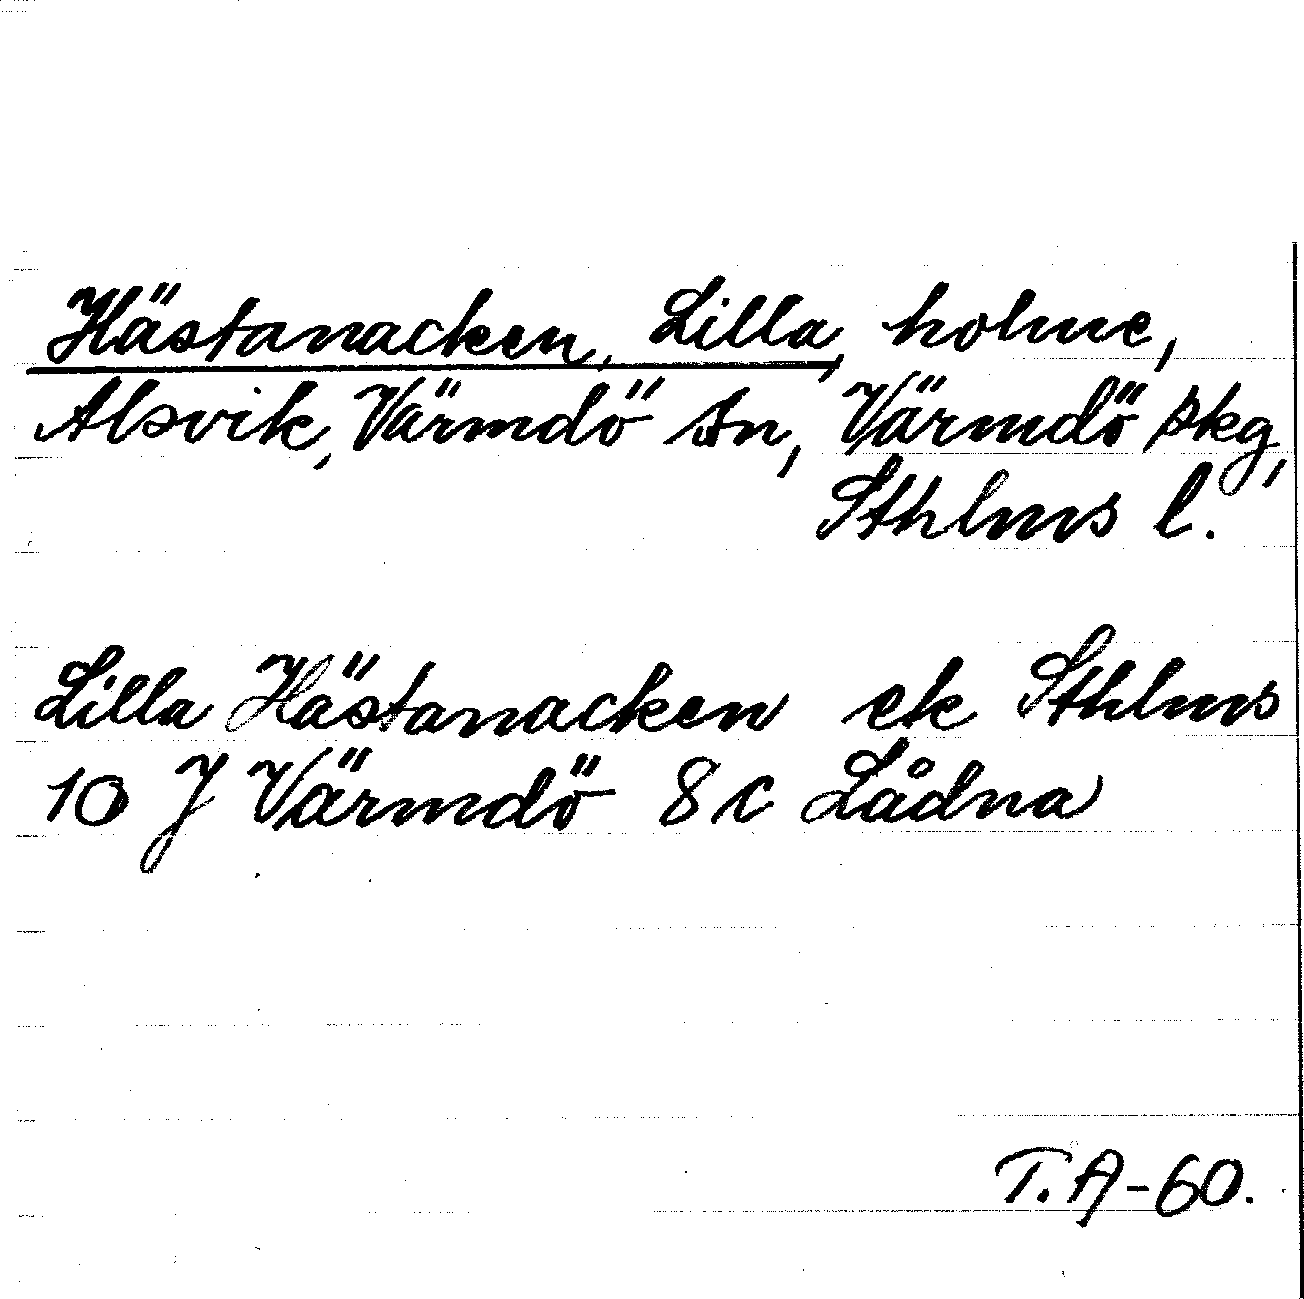 Hästanacken, Lilla, holme,
Alsvik, Värmdö sn, Värmdö skg,
Sthlms l.
Lilla Hästanacken ek Sthlms
10 J Värmdö 8c Lådna
T.A-60.